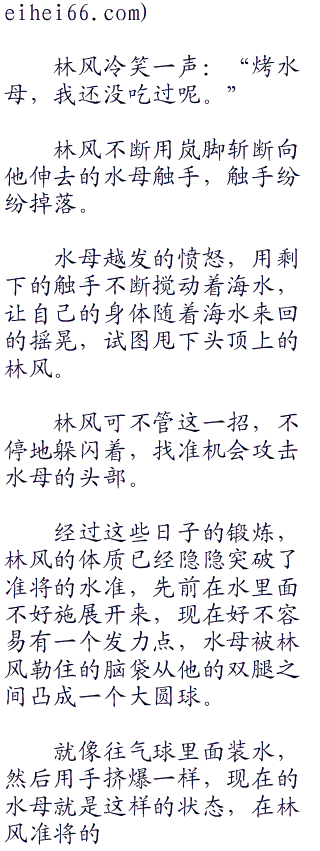 eihei66.com)
林风冷笑一声：“烤水
母，我还没吃过呢。”
林风不断用岚脚斩断向
他伸去的水母触手，触手纷
纷掉落。
水母越发的愤怒，用剩
下的触手不断搅动着海水，
让自己的身体随着海水来回
的摇晃，试图甩下头顶上的
林风。
林风可不管这一招，不
停地躲闪着，找准机会攻击
水母的头部。
经过这些日子的锻炼，
林风的体质已经隐隐突破了
准将的水准，先前在水里面
不好施展开来，现在好不容
易有一个发力点，水母被林
风勒住的脑袋从他的双腿之
间凸成一个大圆球。
就像往气球里面装水，
然后用手挤爆一样，现在的
水母就是这样的状态，在林
风准将的